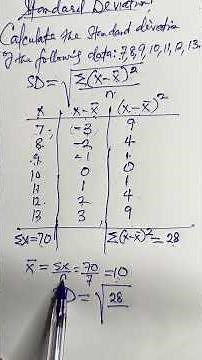 Standard Deviation
Calculate the Standard deviation
of the following data: 7,8,9,10,11,12,13.
SD = √Σ(x-x̄)²
n
x | x-x̄ | (x-x̄)²
7 | -3 | 9
8 | -2 | 4
9 | -1 | 1
10 | 0 | 0
11 | 1 | 1
12 | 2 | 4
13 | 3 | 9
Σx=70 | Σ(x-x̄)² = 28
x̄ = Σx = 70 = 10
7
D = √28